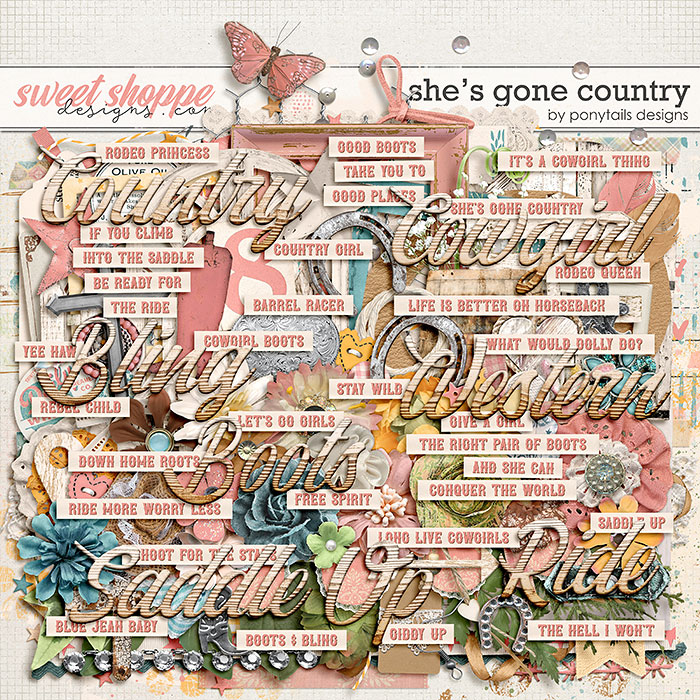 sweet shoppe
designs.com
she's gone country
by ponytails designs
RODEO PRINCESS
GOOD BOOTS
TAKE YOU TO
GOOD PLACES
IT'S A COWGIRL THING
OLIVE OIL
Country
SHE'S GONE COUNTRY
Cowgirl
IF YOU CLIMB
INTO THE SADDLE
BE READY FOR
THE RIDE
8
COUNTRY GIRL
RODEO QUEEN
BARREL RACER
LIFE IS BETTER ON HORSEBACK
YEE HAW
Bling
COWGIRL BOOTS
WHAT WOULD DOLLY DO?
STAY WILD
Western
REBEL CHILD
LET'S GO GIRLS
GIVE A GIRL
THE RIGHT PAIR OF BOOTS
AND SHE CAN
CONQUER THE WORLD
Boots
DOWN HOME ROOTS
FREE SPIRIT
RIDE MORE WORRY LESS
SADDLE UP
LONG LIVE COWGIRLS
SHOOT FOR THE STARS
Saddle Up
Ride
BLUE JEAN BABY
BOOTS & BLING
GIDDY UP
THE HELL I WON'T